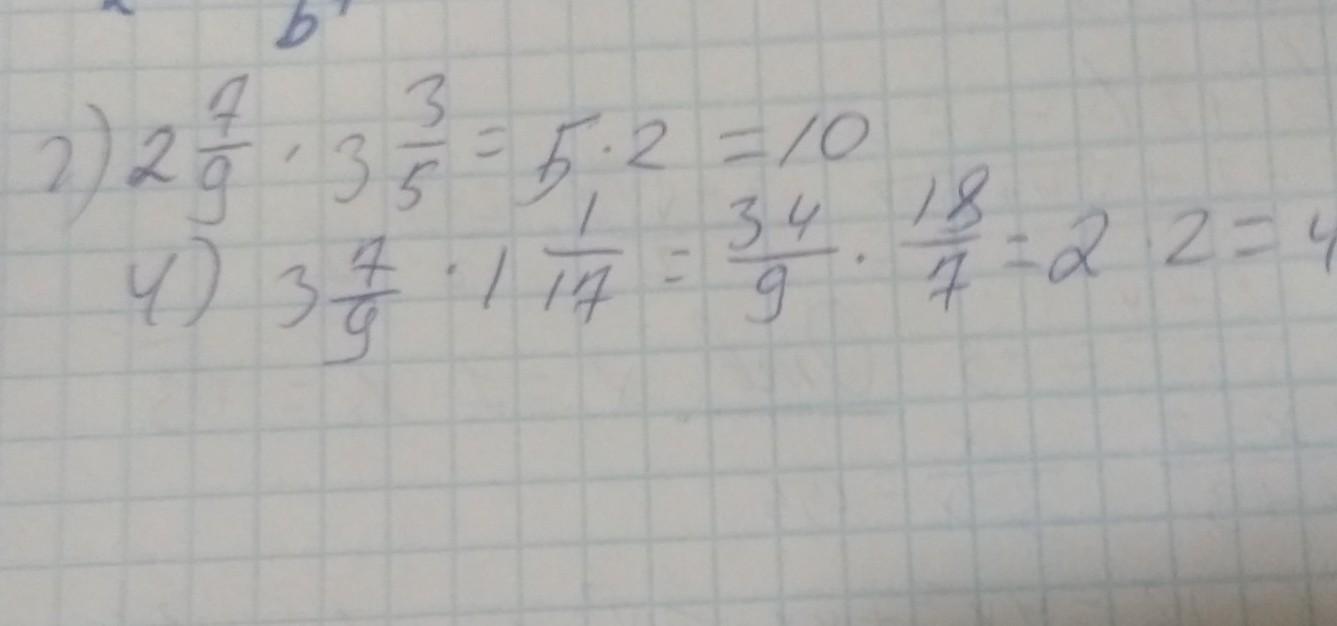 b
2) 2 7/9 · 3 3/5 = 5 · 2 = 10
4) 3 7/9 · 1 1/17 = 34/9 · 18/7 = 2 · 2 = 4